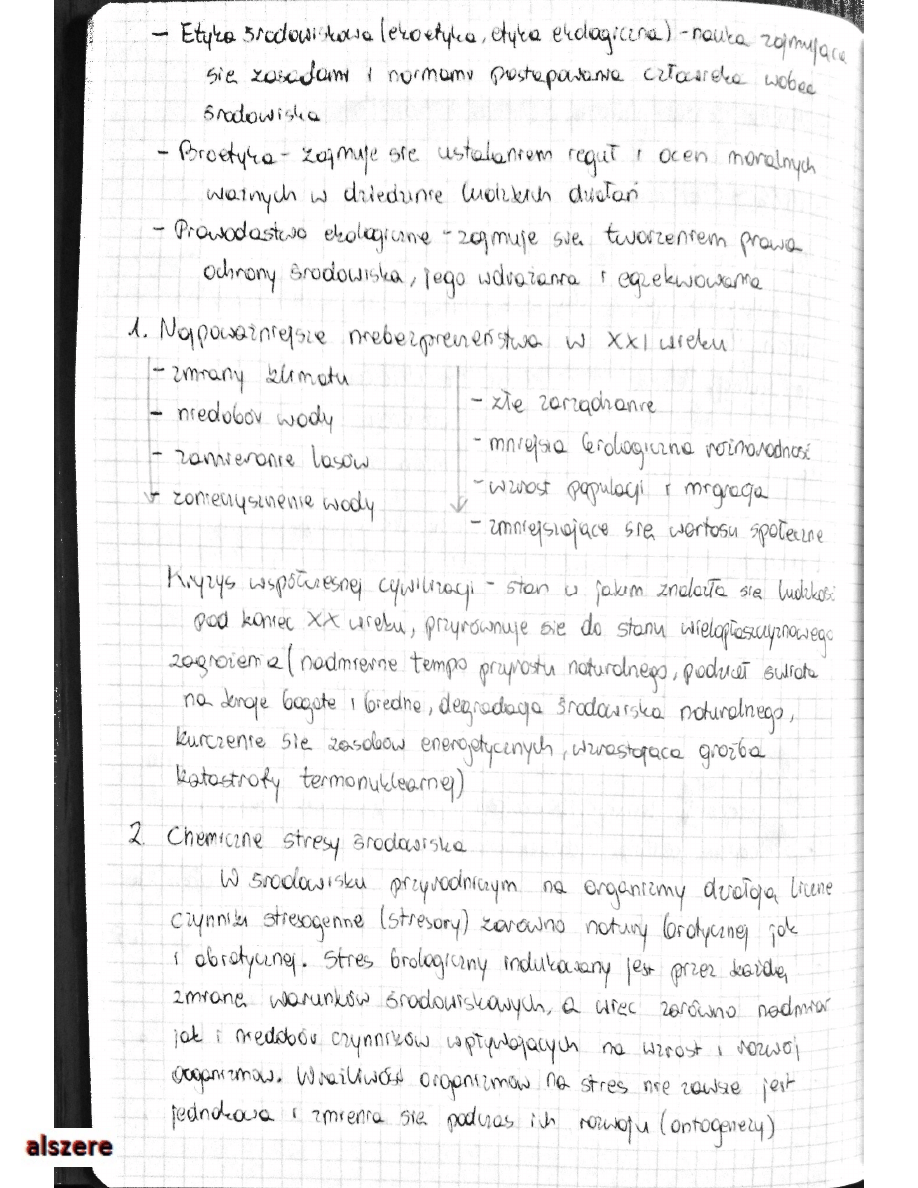 - Etyka środowiskowa (ekoetyka, etyka ekologiczna) - nauka zajmująca
się zasadami i normami postępowania człowieka wobec
środowiska
- Bioetyka - zajmuje się ustalaniem reguł i ocen moralnych
ważnych w dziedzinie ludzkich działań
- Prawodastwo ekologiczne - zajmuje się tworzeniem prawa
ochrony środowiska, jego wdrażania i egzekwowania
1. Najpoważniejsze niebezpieczeństwa w XXI wieku
- zmiany klimatu
- niedobór wody
- zamieranie lasów
- zanieczyszczenie wody
- złe zarządzanie
- mniejsza biologiczna różnorodność
- wzrost populacji i migracja
- zmniejszające się wartości społeczne
Kryzys współczesnej cywilizacji - stan w jakim znalazła się ludzkość
pod koniec XX wieku, przyrównuje się do stanu wielopłaszczyznowego
zagrożenia (nadmierne tempo przyrostu naturalnego, podział świata
na kraje bogate i biedne, degradacja środowiska naturalnego,
kurczenie się zasobów energetycznych, wzrastająca groźba
katastrofy termonuklearnej)
2. Chemiczne stresy środowiska
W środowisku przyrodniczym na organizmy działają liczne
czynniki stresogenne (stresory) zarówno natury biotycznej jak
i abiotycznej. Stres biologiczny indukowany jest przez każdą
zmianę warunków środowiskowych, a więc zarówno nadmiar
jak i niedobór czynników wpływających na wzrost i rozwój
organizmów. Wrażliwość organizmów na stres nie zawsze jest
jednakowa i zmienia się podczas ich rozwoju (ontogenezy)
alszere